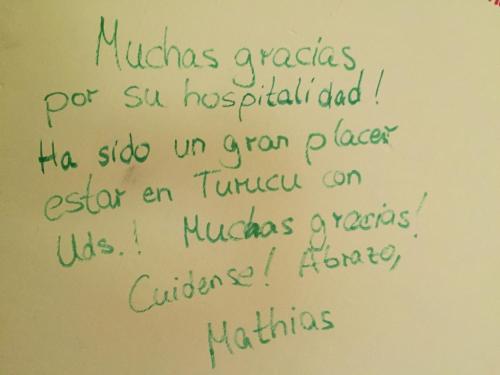 Muchas gracias
por su hospitalidad!
Ha sido un gran placer
estar en Turucu con
Uds.! Muchas gracias!
Cuidense! Abrazo,
Mathias